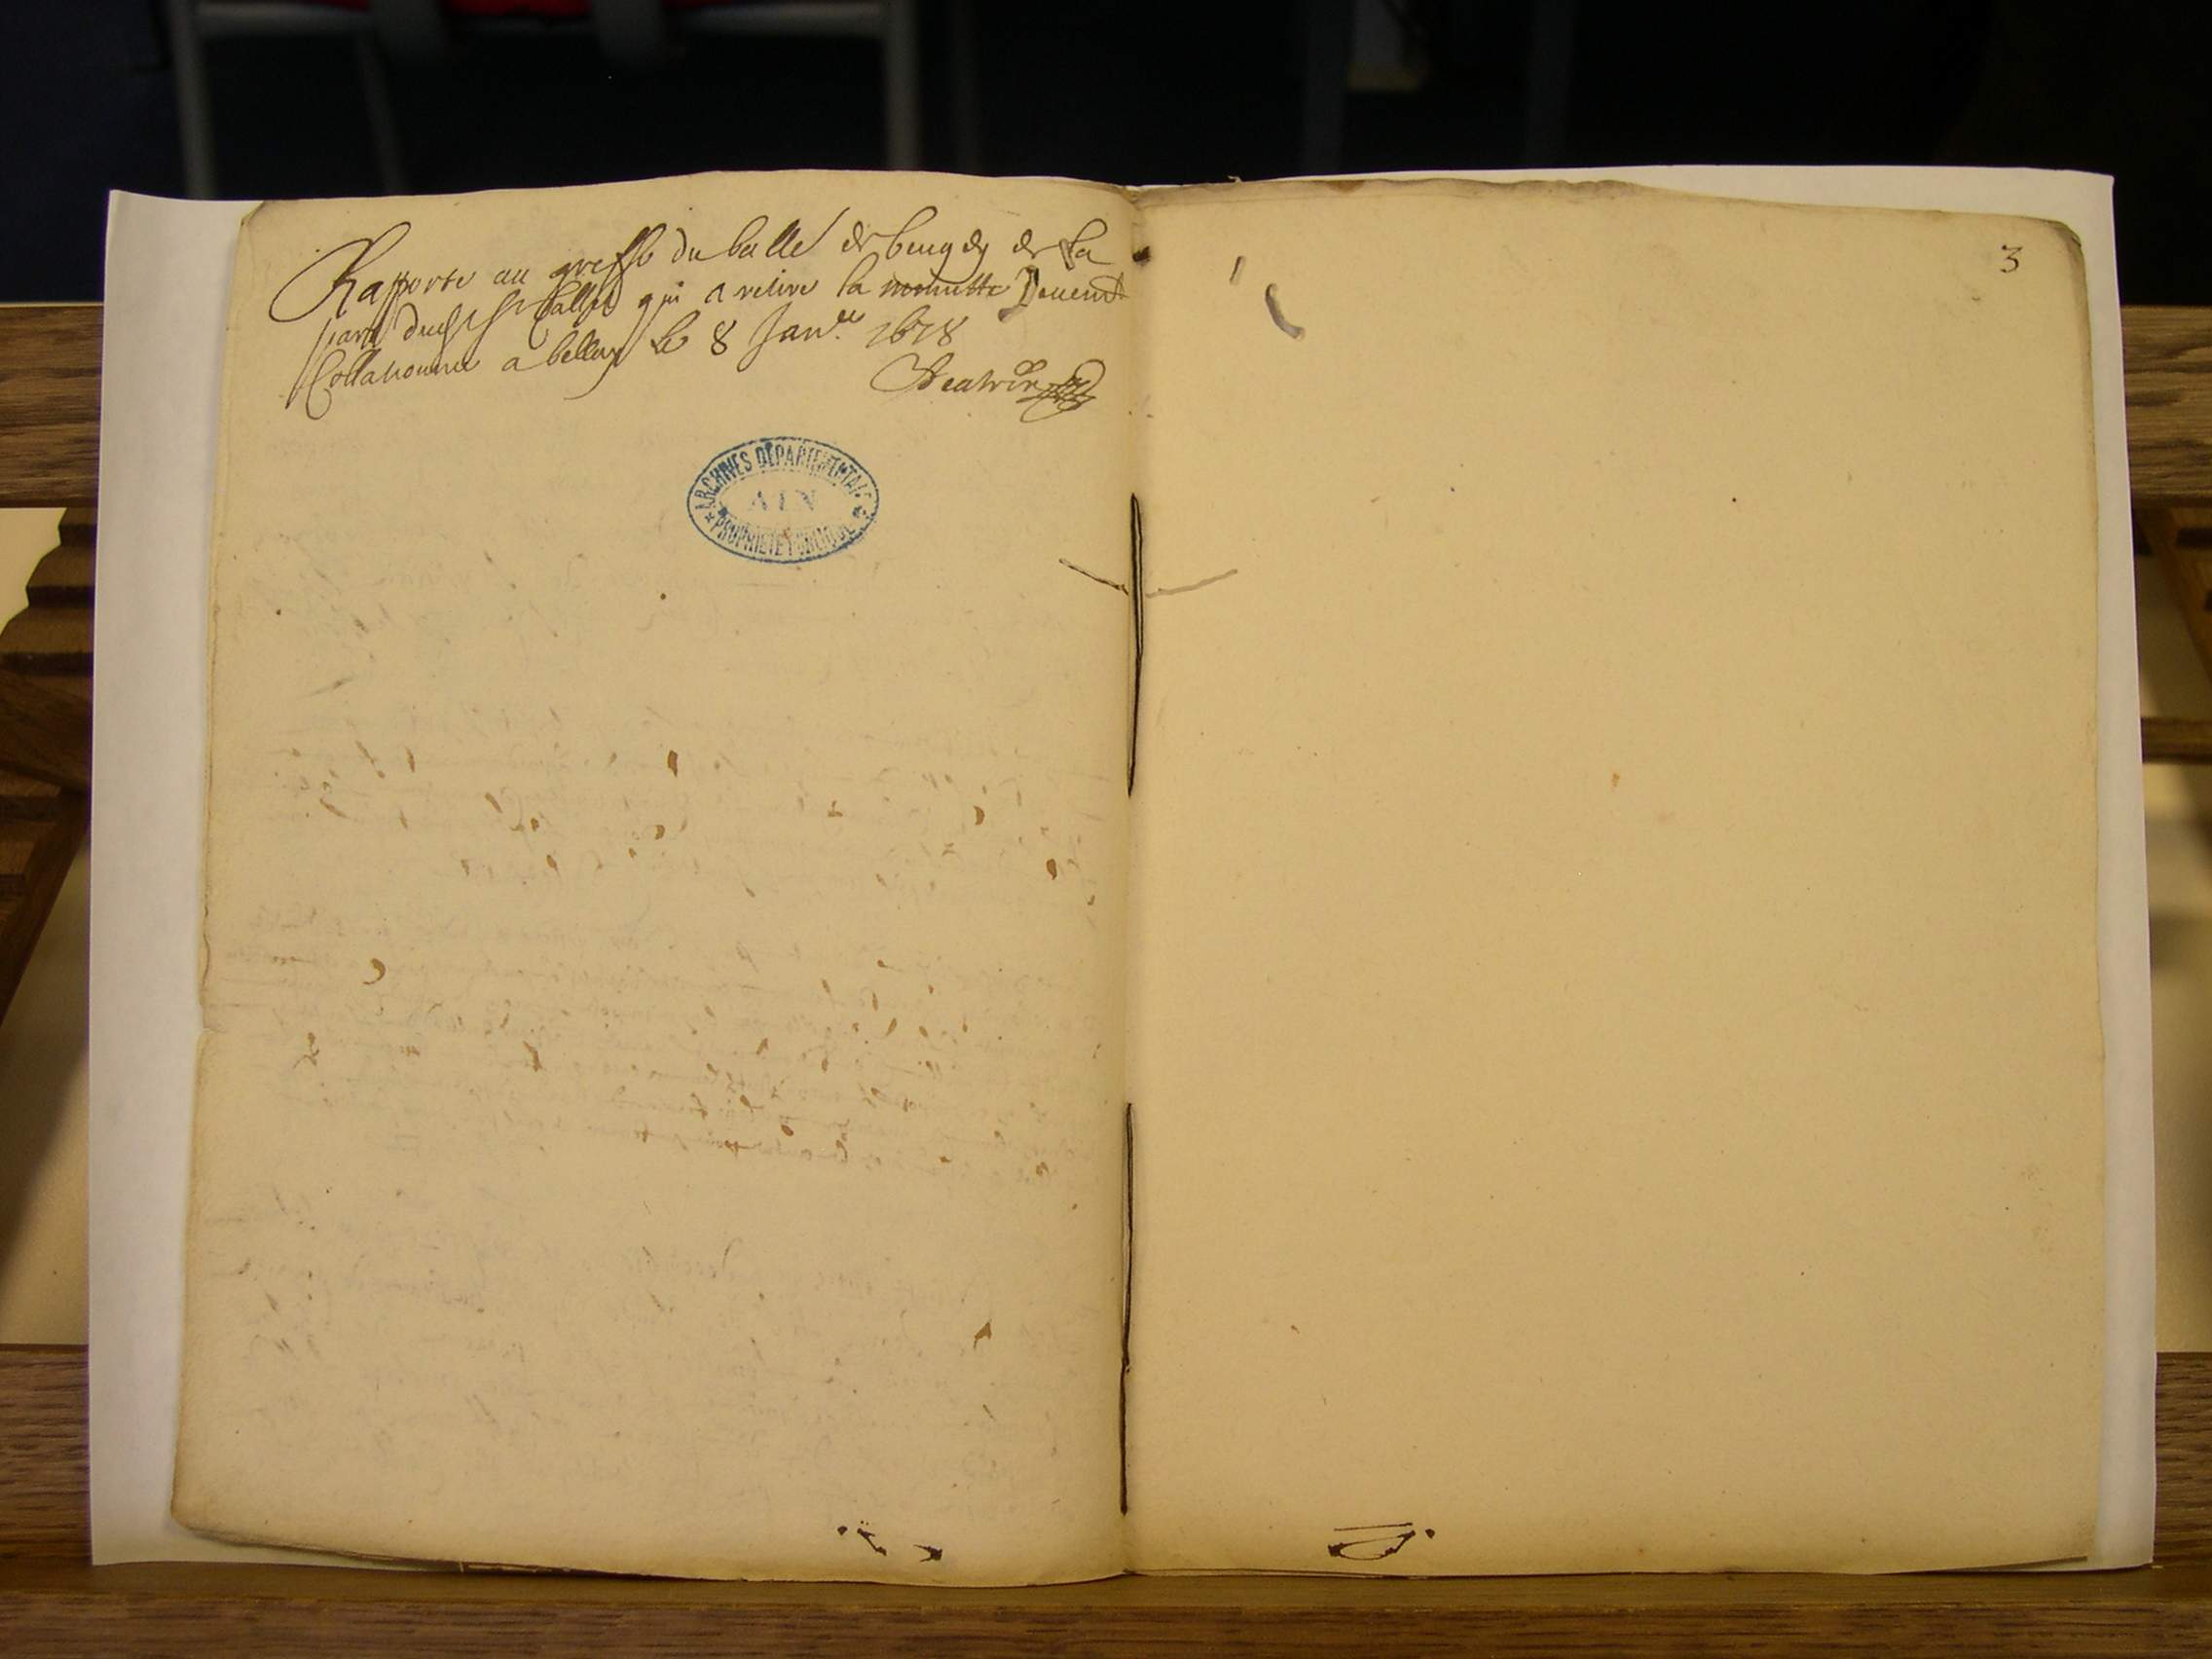 Rapporte au greffe du balle de beugey de la
part dud sr Callet qui a retire la minutte Deuemt
Collationne a belley le 8 Janer 1678
ARCHIVES DÉPARTEMENTALES
AIN
PROPRIÉTÉ PUBLIQUE
3